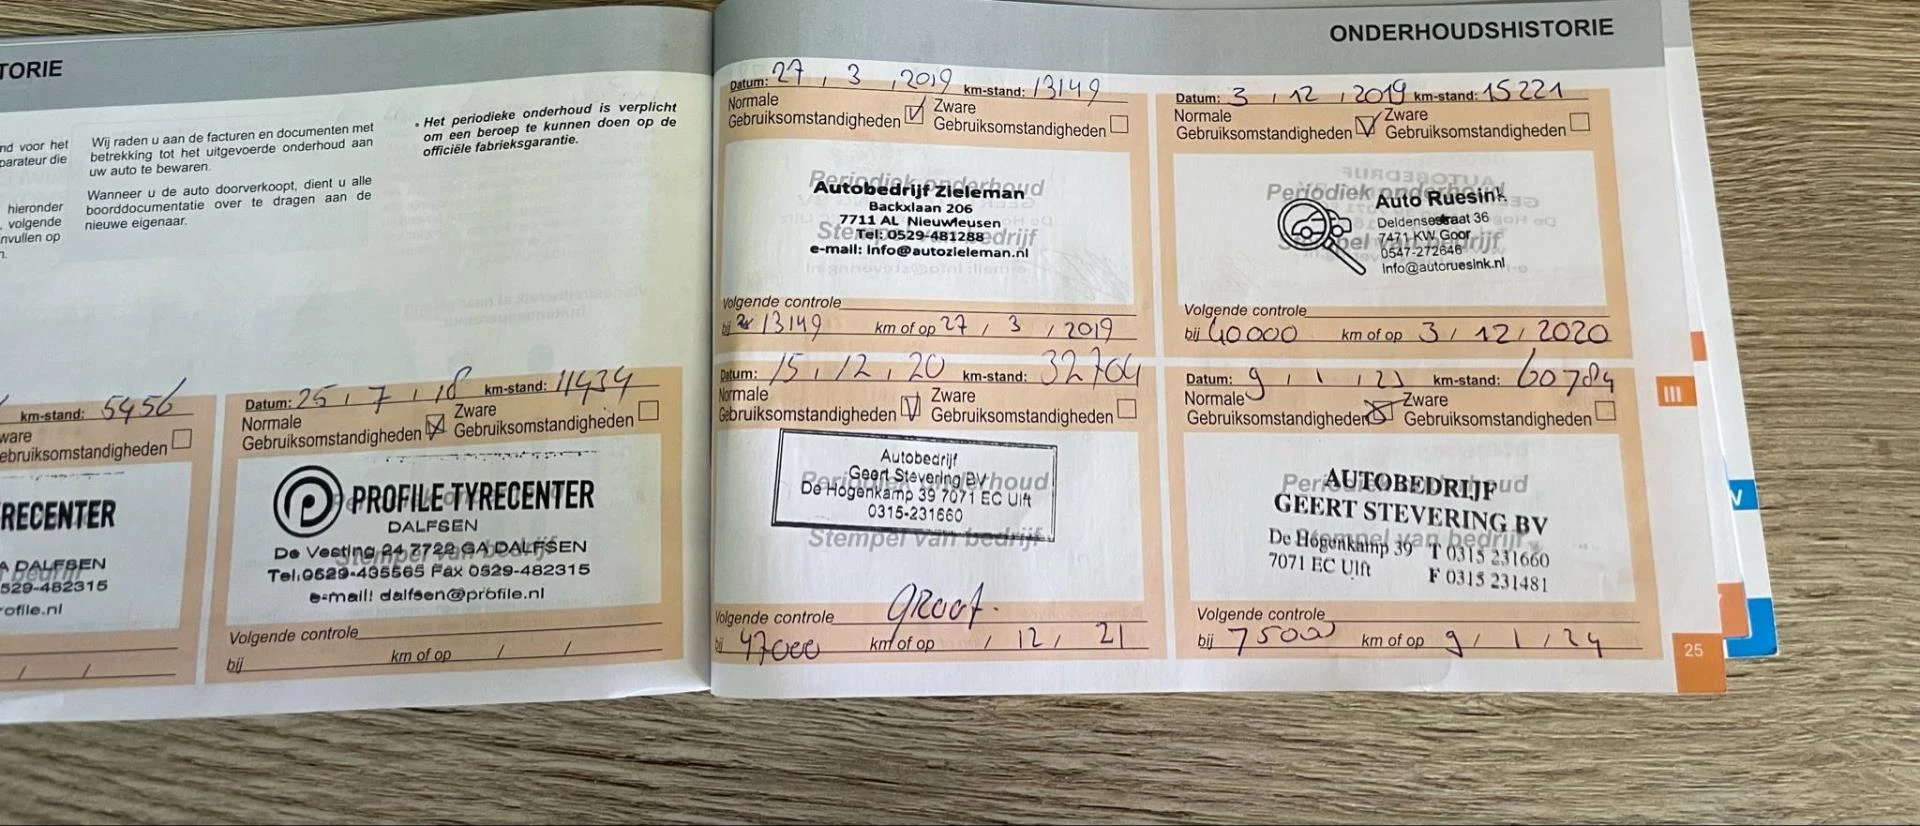 TORIE
nd voor het
parateur die
hieronder
volgende
nvullen op
n.
Wij raden u aan de facturen en documenten met
betrekking tot het uitgevoerde onderhoud aan
uw auto te bewaren.
Wanneer u de auto doorverkoopt, dient u alle
boorddocumentatie over te dragen aan de
nieuwe eigenaar.
• Het periodieke onderhoud is verplicht
om een beroep te kunnen doen op de
officiële fabrieksgarantie.
km-stand: 5456
ware
ebruiksomstandigheden
RECENTER
A DALFSEN
529-482315
rofile.nl
/ /
Datum: 25 / 7 / 18 km-stand: 11434
Normale
Gebruiksomstandigheden
Zware
Gebruiksomstandigheden
PROFILE TYRECENTER
DALFSEN
De Vesting 24 7722 GA DALFSEN
Tel.0529-435565 Fax 0529-482315
e-mail: dalfsen@profile.nl
Stempel van bedrijf
Volgende controle
bij km of op / /
ONDERHOUDSHISTORIE
Datum: 27 / 3 / 2019 km-stand: 13149
Normale
Gebruiksomstandigheden
Zware
Gebruiksomstandigheden
Periodiek onderhoud
Autobedrijf Zieleman
Backxlaan 206
7711 AL Nieuwleusen
Stempel van bedrijf
Tel: 0529-481288
e-mail: info@autozieleman.nl
Volgende controle
bij 13149 km of op 27 / 3 / 2019
Datum: 3 / 12 / 2019 km-stand: 15221
Normale
Gebruiksomstandigheden
Zware
Gebruiksomstandigheden
Periodiek onderhoud
Auto Ruesink
Deldensestraat 36
7471 KW Goor
Stempel van bedrijf
0547-272646
info@autoruesink.nl
Volgende controle
bij 40000 km of op 3 / 12 / 2020
Datum: 15 / 12 / 20 km-stand: 32704
Normale
Gebruiksomstandigheden
Zware
Gebruiksomstandigheden
Autobedrijf
Geert Stevering BV
Periodiek onderhoud
De Hogenkamp 39 7071 EC Ulft
0315-231660
Stempel van bedrijf
groot.
Volgende controle
bij 47000 km of op / 12 / 21
Datum: 9 / 1 / 23 km-stand: 60784
Normale
Gebruiksomstandigheden
Zware
Gebruiksomstandigheden
Periodiek onderhoud
AUTOBEDRIJF
GEERT STEVERING BV
Stempel van bedrijf
De Hogenkamp 39 T 0315 231660
7071 EC Ulft F 0315 231481
Volgende controle
bij 75000 km of op 9 / 1 / 24
III
25